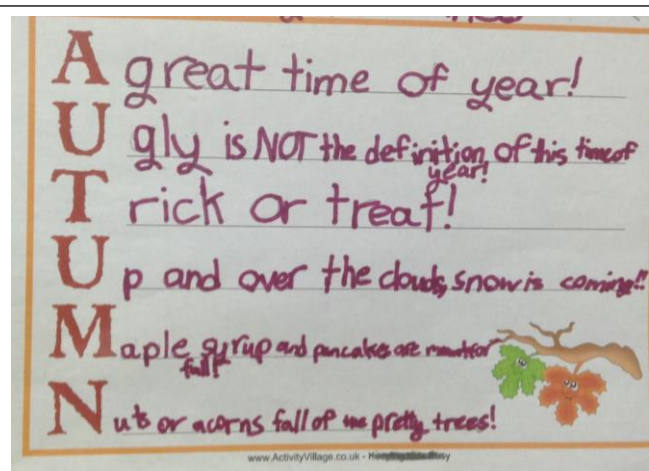 A great time of year!
Ugly is NOT the definition of this time of
year!
Trick or treat!
Up and over the clouds, snow is coming!!
Maple syrup and pancakes are meant for
fall!
Nuts or acorns fall of the pretty trees!
www.ActivityVillage.co.uk - Keeping Kids Busy